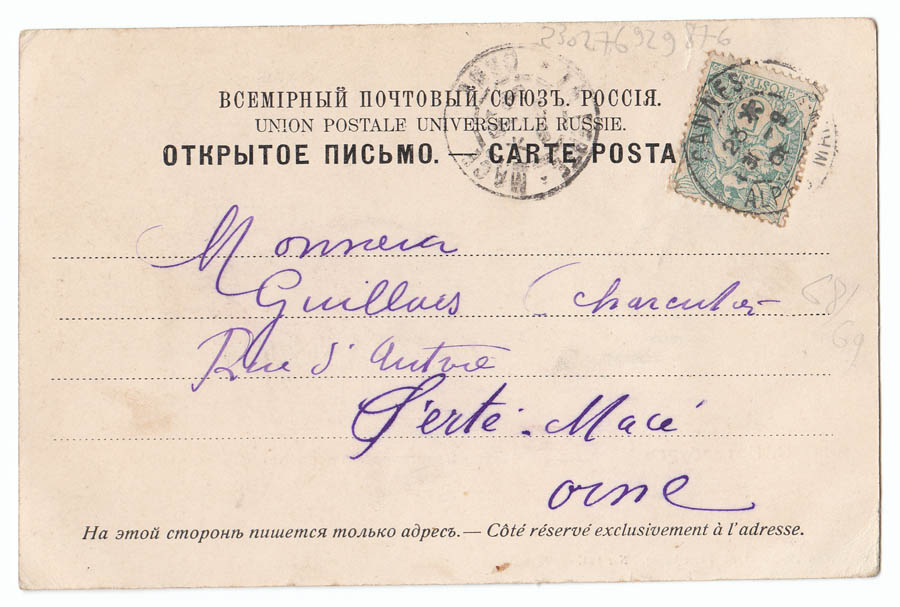 230276929 876
ВСЕМІРНЫЙ ПОЧТОВЫЙ СОЮЗЪ. РОССІЯ.
UNION POSTALE UNIVERSELLE RUSSIE.
ОТКРЫТОЕ ПИСЬМО. — CARTE POSTA
CANNES
ALP
Monsieur
Guillouis Charcutier
Rue d'Antre
Ferté-Macé
Orne
68/
69
На этой сторонѣ пишется только адресъ.— Côté réservé exclusivement à l'adresse.